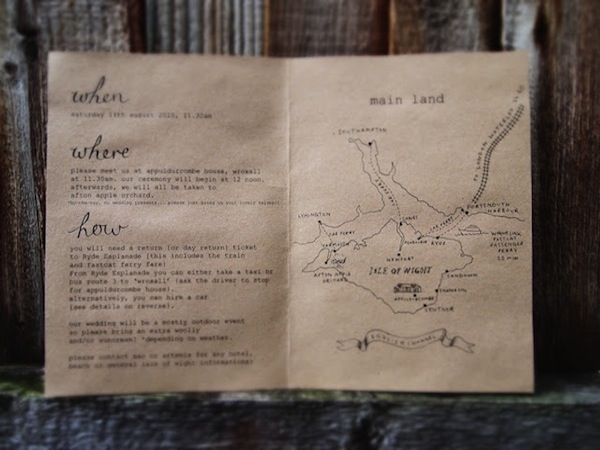 when
saturday 11th august 2010, 11.30am
where
please meet us at appuldurcombe house, wroxall
at 11.30am. our ceremony will begin at 12 noon.
afterwards, we will all be taken to
afton apple orchard.
how
you will need a return (or day return) ticket
to Ryde Esplanade (this includes the train
and fastcat ferry fare)
From Ryde Esplanade you can either take a taxi or
bus route 3 to "wroxall" (ask the driver to stop
for appuldurcombe house).
alternatively, you can hire a car
(see details on reverse).
our wedding will be a mostly outdoor event
so please bring an extra woolly
and/or sunscreen! *depending on weather.
please contact or artemis for any hotel,
beach or general isle of wight information!
main land
SOUTHAMPTON
TO LONDON WATERLOO
PORTSMOUTH
HARBOUR
LYMINGTON
CAR FERRY
YARMOUTH
COWES
CAR FERRY
RYDE
FASTCAT
PASSENGER
FERRY
NEWPORT
AFTON APPLE
ORCHARD
ISLE OF WIGHT
SANDOWN
SHANKLIN
APPULDURCOMBE
VENTNOR
ENGLISH CHANNEL